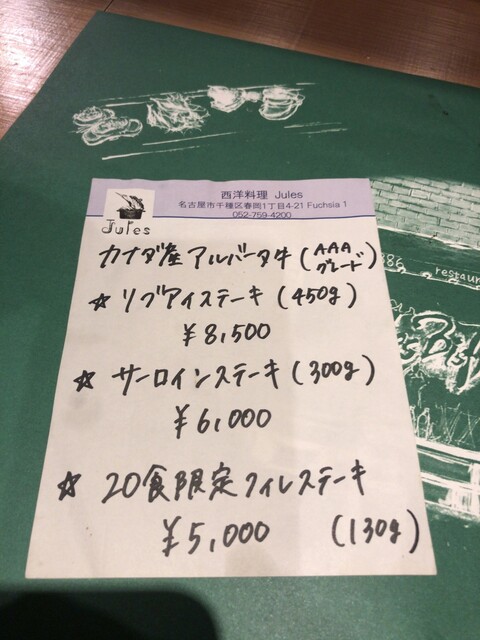 西洋料理 Jules
名古屋市千種区春岡1丁目4-21 Fuchsia 1
052-759-4200
Jules
カナダ産アルバータ牛(AAAグレード)
☆ リブアイステーキ(450g)
¥8,500
☆ サーロインステーキ(300g)
¥6,000
☆ 20食限定フィレステーキ
¥5,000 (130g)
86 restaur